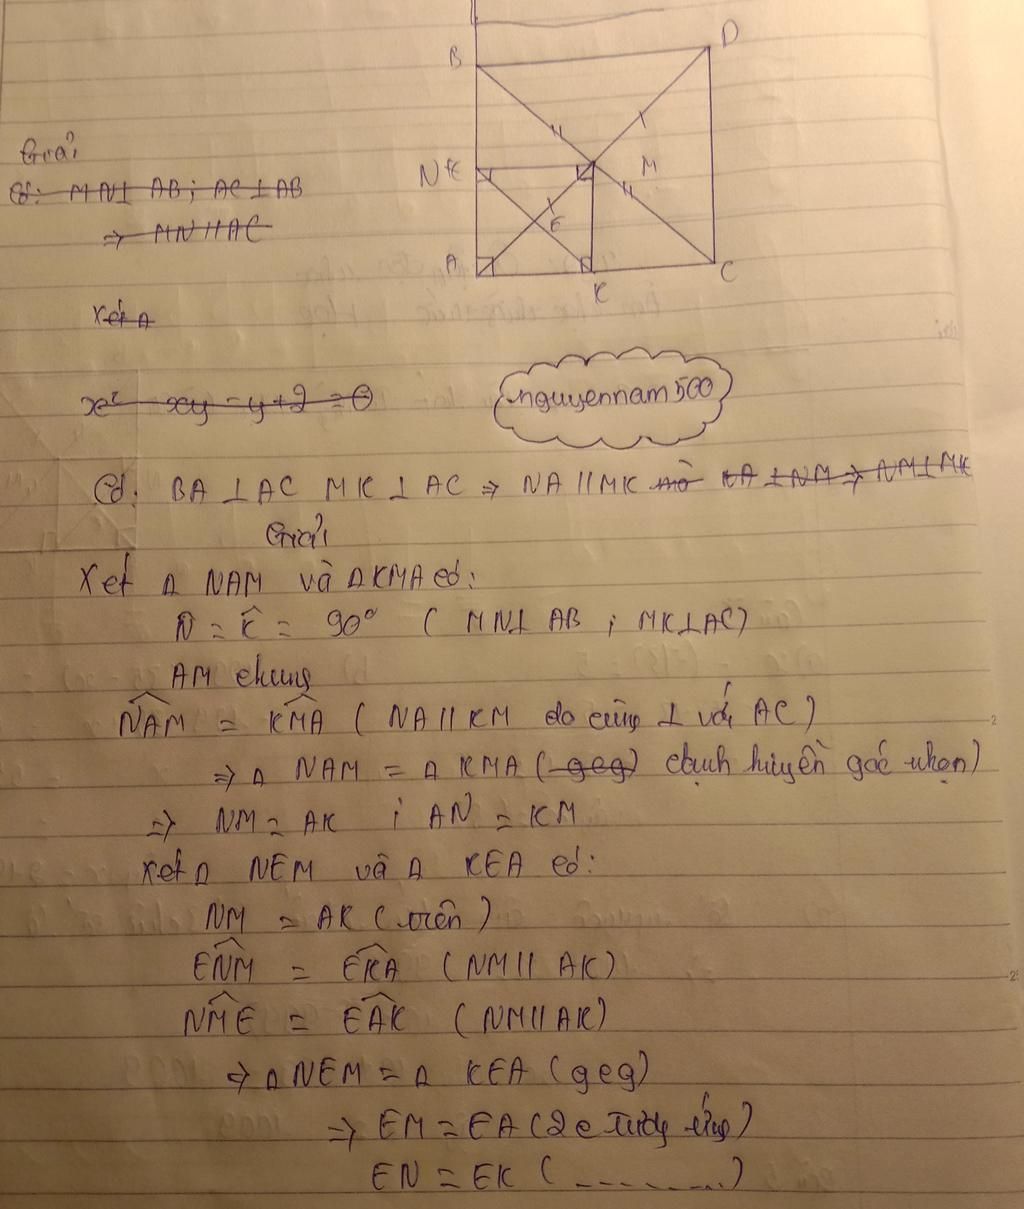 B
D
Giải
N
M
Có: MN⊥ AB ; AC⊥AB
E
⇒ MN // AC
A
C
K
Xét Δ
x² - xy - y + 2 = 0
nguyennam500
Có: BA ⊥ AC MK ⊥ AC ⇒ NA // MK mà KA ⊥ NM ⇒ NM⊥MK
Giải
Xét Δ NAM và ΔKMA có:
N̂ = K̂ = 90° ( MN⊥ AB ; MK⊥AC)
AM chung
NAM = KMA ( NA // KM do cùng ⊥ với AC )
⇒ Δ NAM = Δ KMA ( gcg) cạnh huyền góc nhọn)
⇒ NM = AK ; AN = KM
Xét Δ NEM và Δ KEA có:
NM = AK ( trên )
ENM = EKA ( NM // AK )
NME = EAK ( NM // AK)
⇒ Δ NEM = Δ KEA ( gcg)
⇒ EM = EA ( 2c tương ứng)
EN = EK ( ........ )